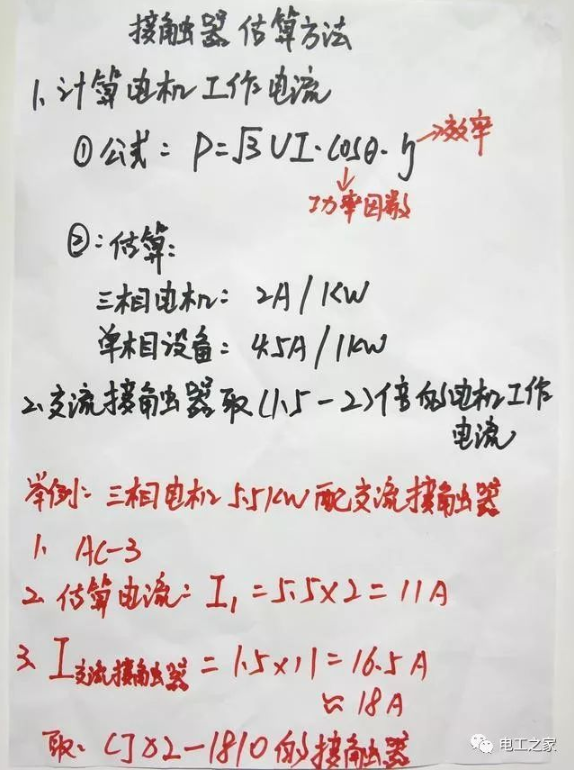 接触器估算方法
1、计算电机工作电流
①公式：P=√3UI·cosθ·η→效率
↓
功率因数
②：估算：
三相电机：2A/1KW
单相设备：4.5A/1KW
2、交流接触器取(1.5-2)倍的电机工作
电流
举例：三相电机5.5KW配交流接触器
1、AC-3
2、估算电流：I₁=5.5×2=11A
3、I交流接触器=1.5×11=16.5A
≈18A
取：CJX2-1810的接触器
电工之家